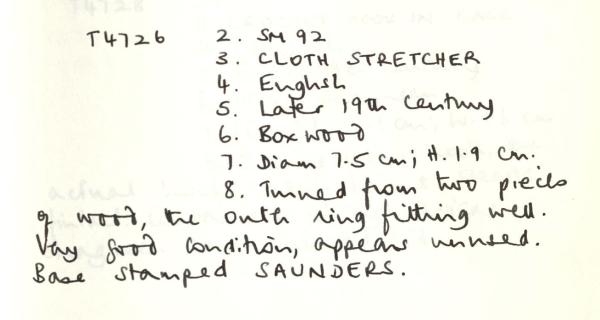 T4726 2. SM 92
3. CLOTH STRETCHER
4. English
5. Later 19th century
6. Boxwood
7. Diam 7.5 cm; H. 1.9 cm.
8. Turned from two pieces
of wood, the outer ring fitting well.
Very good condition, appears unused.
Base stamped SAUNDERS.